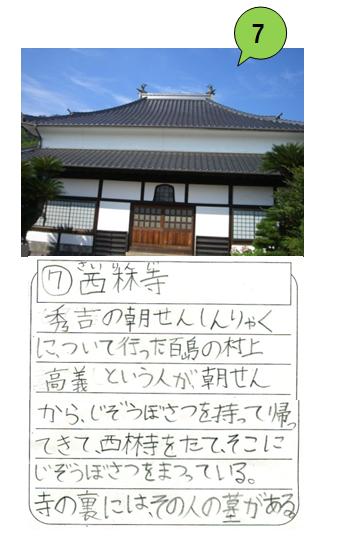 7
さいりんじ
⑦西林寺
秀吉の朝せんしんりゃく
に、ついて行った百島の村上
高義という人が、朝せん
から、じぞうぼさつを持って帰っ
てきて、西林寺をたて、そこに
じぞうぼさつをまつっている。
寺の裏には、その人の墓がある